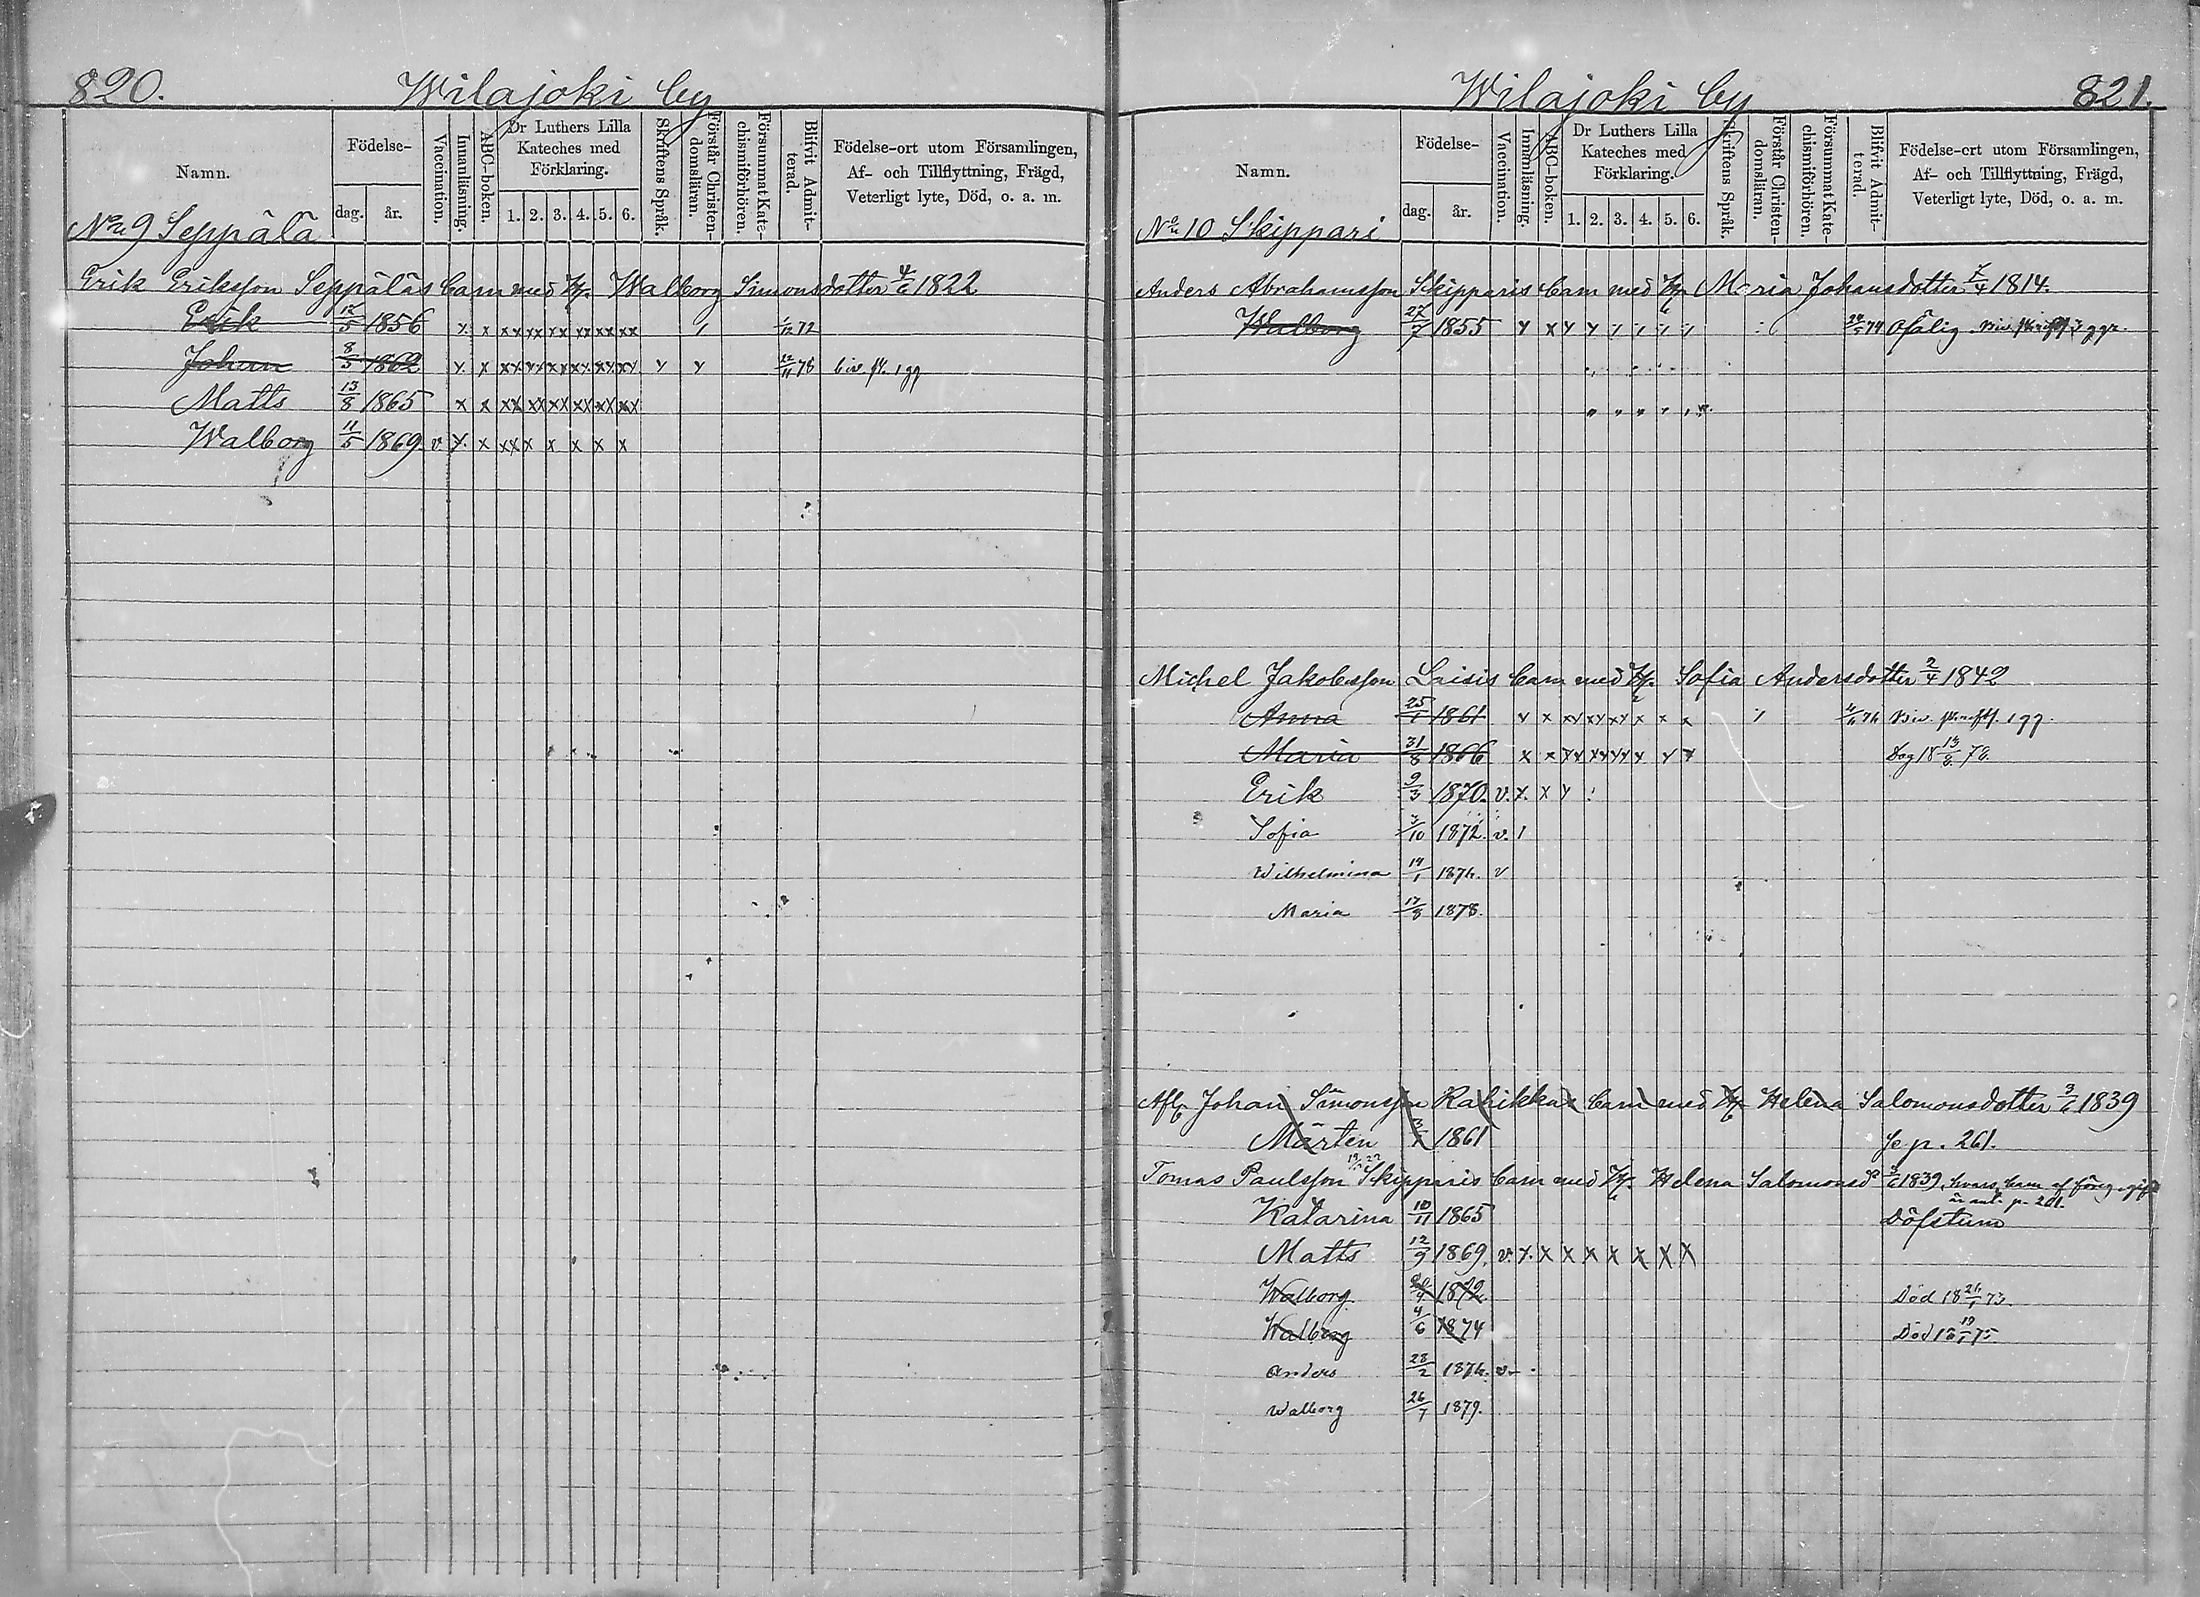 820. Wilajoki by
Namn. Födelse- dag. år. Vaccination. Innanläsning. ABC-boken. Dr Luthers Lilla Kateches med Förklaring. 1. 2. 3. 4. 5. 6. Skriftens Språk. Förstår Christendomsläran. Försummat Katechismiförhören. Blifvit Admitterad. Födelse-ort utom Församlingen, Af- och Tillflyttning, Frägd, Veterligt lyte, Död, o. a. m.
No 9 Seppälä
Erik Eriksson Seppäläs barn med H. Walborg Simonsdotter 4/6 1822
Erik 12/5 1856 x x xx xx xx xx xx xx 1/12 72
Johan 8/5 1862 x x xx xx xx xx xx xx x x 22/11 78 1 gg
Matts 13/8 1865 x x xx xx xx xx xx xx
Walborg 11/5 1869 v. x x xx x x x x x
Wilajoki by 821.
Namn. Födelse- dag. år. Vaccination. Innanläsning. ABC-boken. Dr Luthers Lilla Kateches med Förklaring. 1. 2. 3. 4. 5. 6. Skriftens Språk. Förstår Christendomsläran. Försummat Katechismiförhören. Blifvit Admitterad. Födelse-ort utom Församlingen, Af- och Tillflyttning, Frägd, Veterligt lyte, Död, o. a. m.
No 10 Skippari
Anders Abrahamsson Skipparis barn med H. Maria Johansdotter 7/4 1814.
Walborg 27/7 1855 Ofälig
Michel Jakobsson Laisis barn med H. Sofia Andersdotter 2/4 1842
Anna 25/1 1861 x x xx xx xx x x x 1 gg.
Maria 31/8 1866 x x xx xx xx x x x Dog 18 13/8 78.
Erik 9/3 1870. v. x. x x
Sofia 3/10 1872. v. 1
Wilhelmina 14/1 1876. v
Maria 17/8 1878.
Afl. Johan Simonsson Rahikkas barn med H. Helena Salomonsdotter 3/6 1839
Mårten 3/1 1861 Se p. 261.
Tomas Paulsson Skipparis barn med H. Helena Salomonsdr 3/6 1839, hvars barn af föreg. gift.
är ant. p. 261.
Katarina 10/11 1865 Döfstum
Matts 12/9 1869. v. x. x x x x x x x
Walborg 1872. Död 18 26/1 73.
Walborg 4/6 1874 Död 18 19/1 75
Anders 28/2 1876. v
Walborg 26/7 1879.